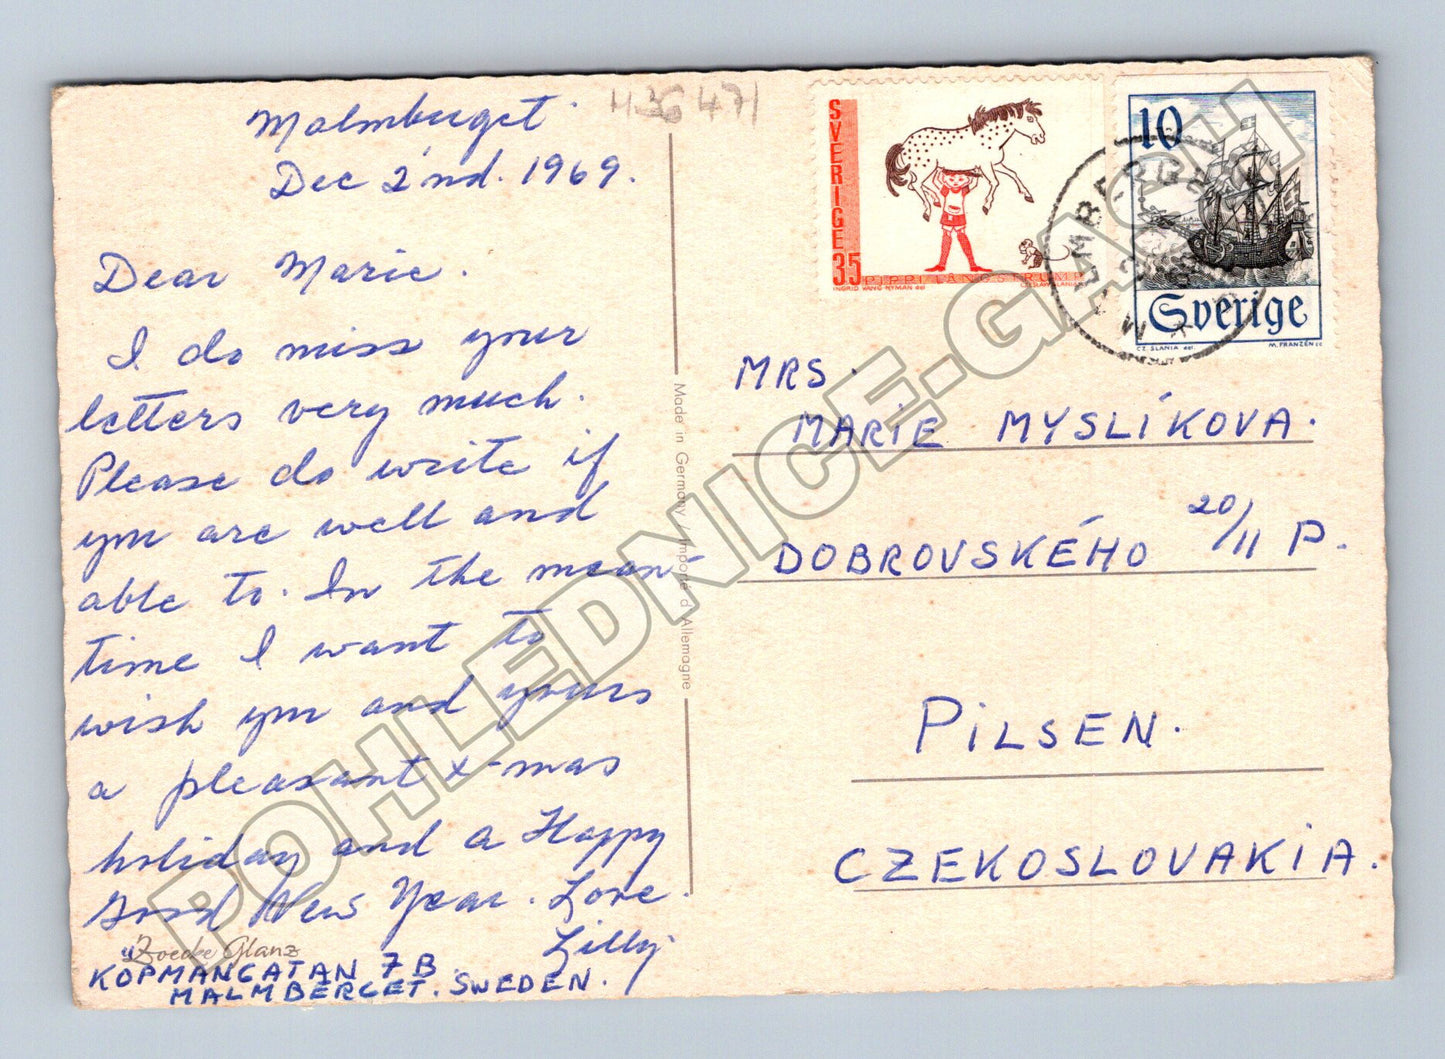 H36471
Malmberget
Dec 2nd. 1969.
Dear Marie.
I do miss your
letters very much.
Please do write if
you are well and
able to. In the mean-
time I want to
wish you and yours
a pleasant x-mas
holiday and a Happy
Good New Year. Love.
Lilly
Zoecke Glanz
KOPMANGATAN 7B.
MALMBERGET. SWEDEN.
Made in Germany / Importé d'Allemagne
SVERIGE
35
PIPPI LÅNGSTRUMP
INGRID VANG-NYMAN del
CZESLAW SLANIA
10
Sverige
CZ. SLANIA del.
M. FRANZÉN sc
MALMBERGET
MRS.
MARIE MYSLÍKOVA.
DOBROVSKÉHO 20/11 P.
PILSEN.
CZEKOSLOVAKIA.
POHLEDNICE-GASH